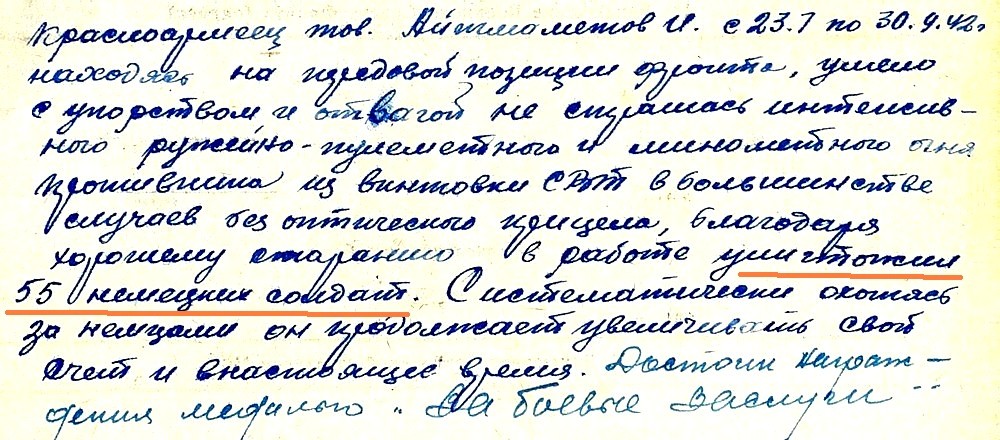 Красноармеец тов. Айтмаметов И. с 23.7 по 30.9.42г
находясь на передовой позиции фронта, умело
с упорством и отвагой не страшась интенсив-
ного ружейно-пулеметного и минометного огня
противника из винтовки СВТ в большинстве
случаев без оптического прицела, благодаря
хорошему старанию в работе уничтожил
55 немецких солдат. Систематически охотясь
за немцами он продолжает увеличивать свой
счет и внастоящее время. Достоин награж-
дения медалью „За боевые заслуги"